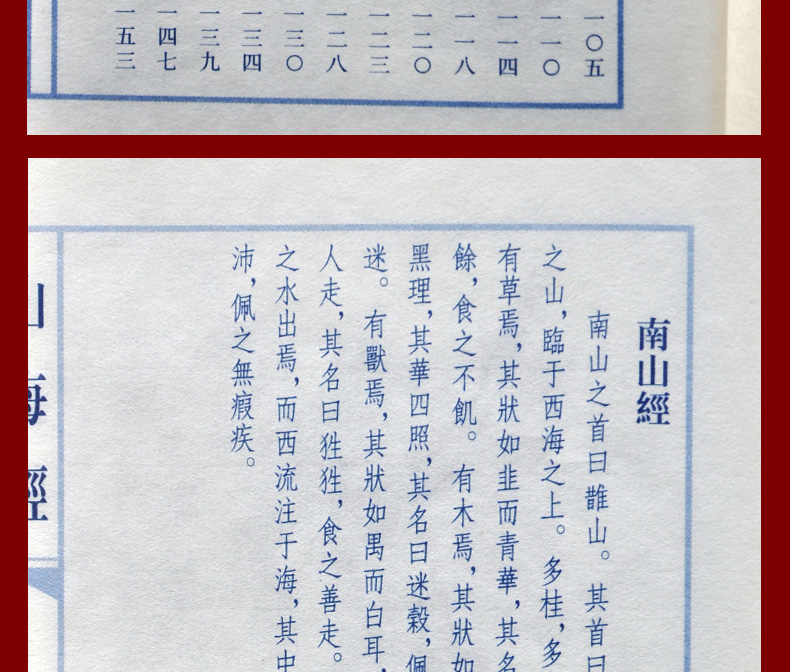 一〇五
一一〇
一一四
一一八
一二〇
一二三
一二八
一三〇
一三四
一三九
一四七
一五三
南山經
南山之首曰䧿山。其首曰
之山，臨于西海之上。多桂，多
有草焉，其狀如韭而青華，其名
餘，食之不飢。有木焉，其狀如
黑理，其華四照，其名曰迷穀，佩
迷。有獸焉，其狀如禺而白耳，
人走，其名曰狌狌，食之善走。
之水出焉，而西流注于海，其中
沛，佩之無瘕疾。
山海經